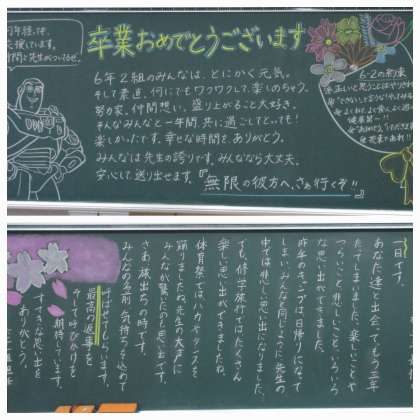 何年経っても、
応援しています。
仲間と先生がついてるぜ。
卒業おめでとうございます
6年2組のみんなは、とにかく元気。
そして素直、何にでもワクワクして、楽しめちゃう。
努力家、仲間想い、盛り上がること大好き。
そんなみんなと一年間、共に過ごしてとっても!
楽しかったです。幸せな時間を、ありがとう。
みんなは先生の誇りです。みんななら大丈夫。
安心して送り出せます。
『無限の彼方へ、さぁ行くぞ!!』
6-2の約束
一日です。
あなた達と出会ってもう三年
たってしまいました。楽しいことや
つらいこと、悲しいこと、いろいろ
な思い出ができました。
昨年のキャンプは日帰りになって
しまい、みんなと同じように先生の
中でも悲しい思い出になりました。
でも、修学旅行ではたくさん
楽しい思い出ができましたね。
体育祭では、
踊りましたね。先生の大きさに
みんなが驚いたのも思い出です。
さあ、旅出ちの時です。
みんなの名前、気持ちを込めて
呼ばせてもらいます。
最高の返事を
そして呼びかけを
期待しています。
すてきな思い出を
ありがとう。